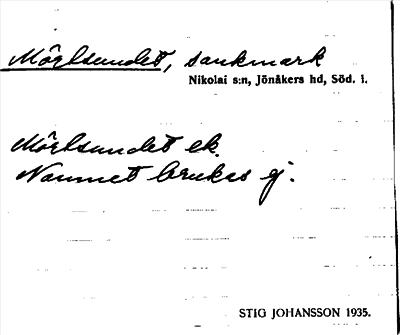 Mörlsundet, sankmark
Nikolai s:n, Jönåkers hd, Söd. l.
Mörlsundet ek.
Namnet brukas ej.
STIG JOHANSSON 1935.